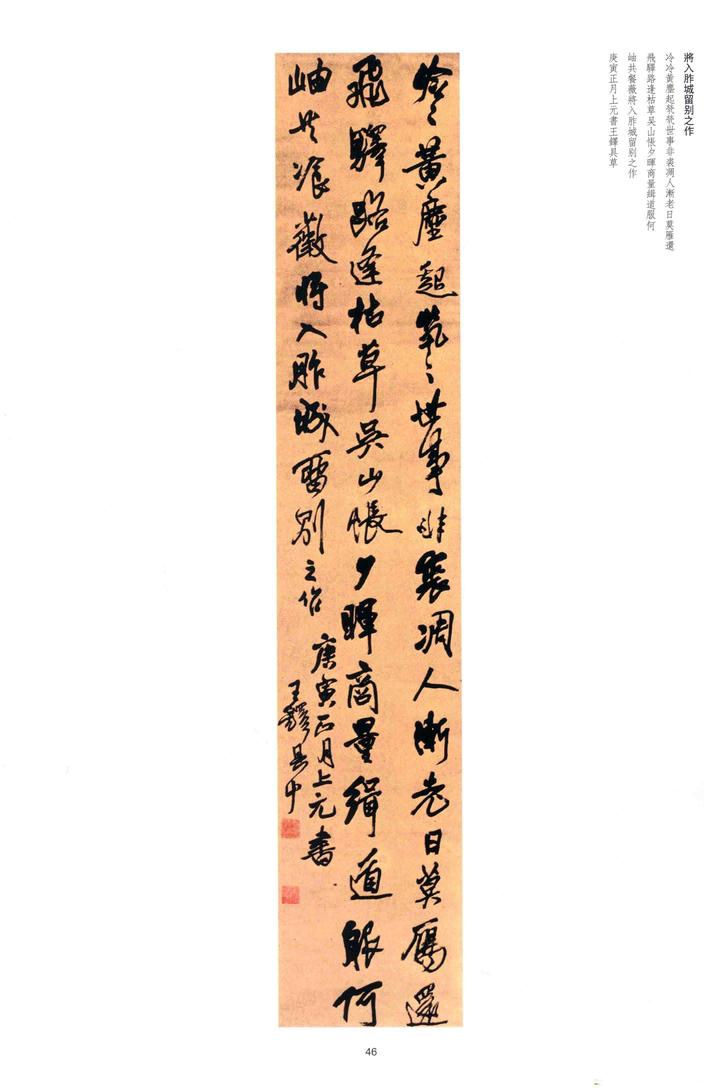 將入胙城留別之作
冷冷黃塵起焭焭世事非裘凋人漸老日莫雁還
飛驛路逢枯草吴山悵夕暉商量緝道服何
岫共餐薇將入胙城留別之作
庚寅正月上元書王鐸具草
冷〻黃塵起焭〻世事非裘凋人漸老日莫鴈還
飛驛路逢枯草吳山悵夕暉商量緝道服何
岫共飡薇將入胙城留別之作
庚寅正月上元書
王鐸具草
46